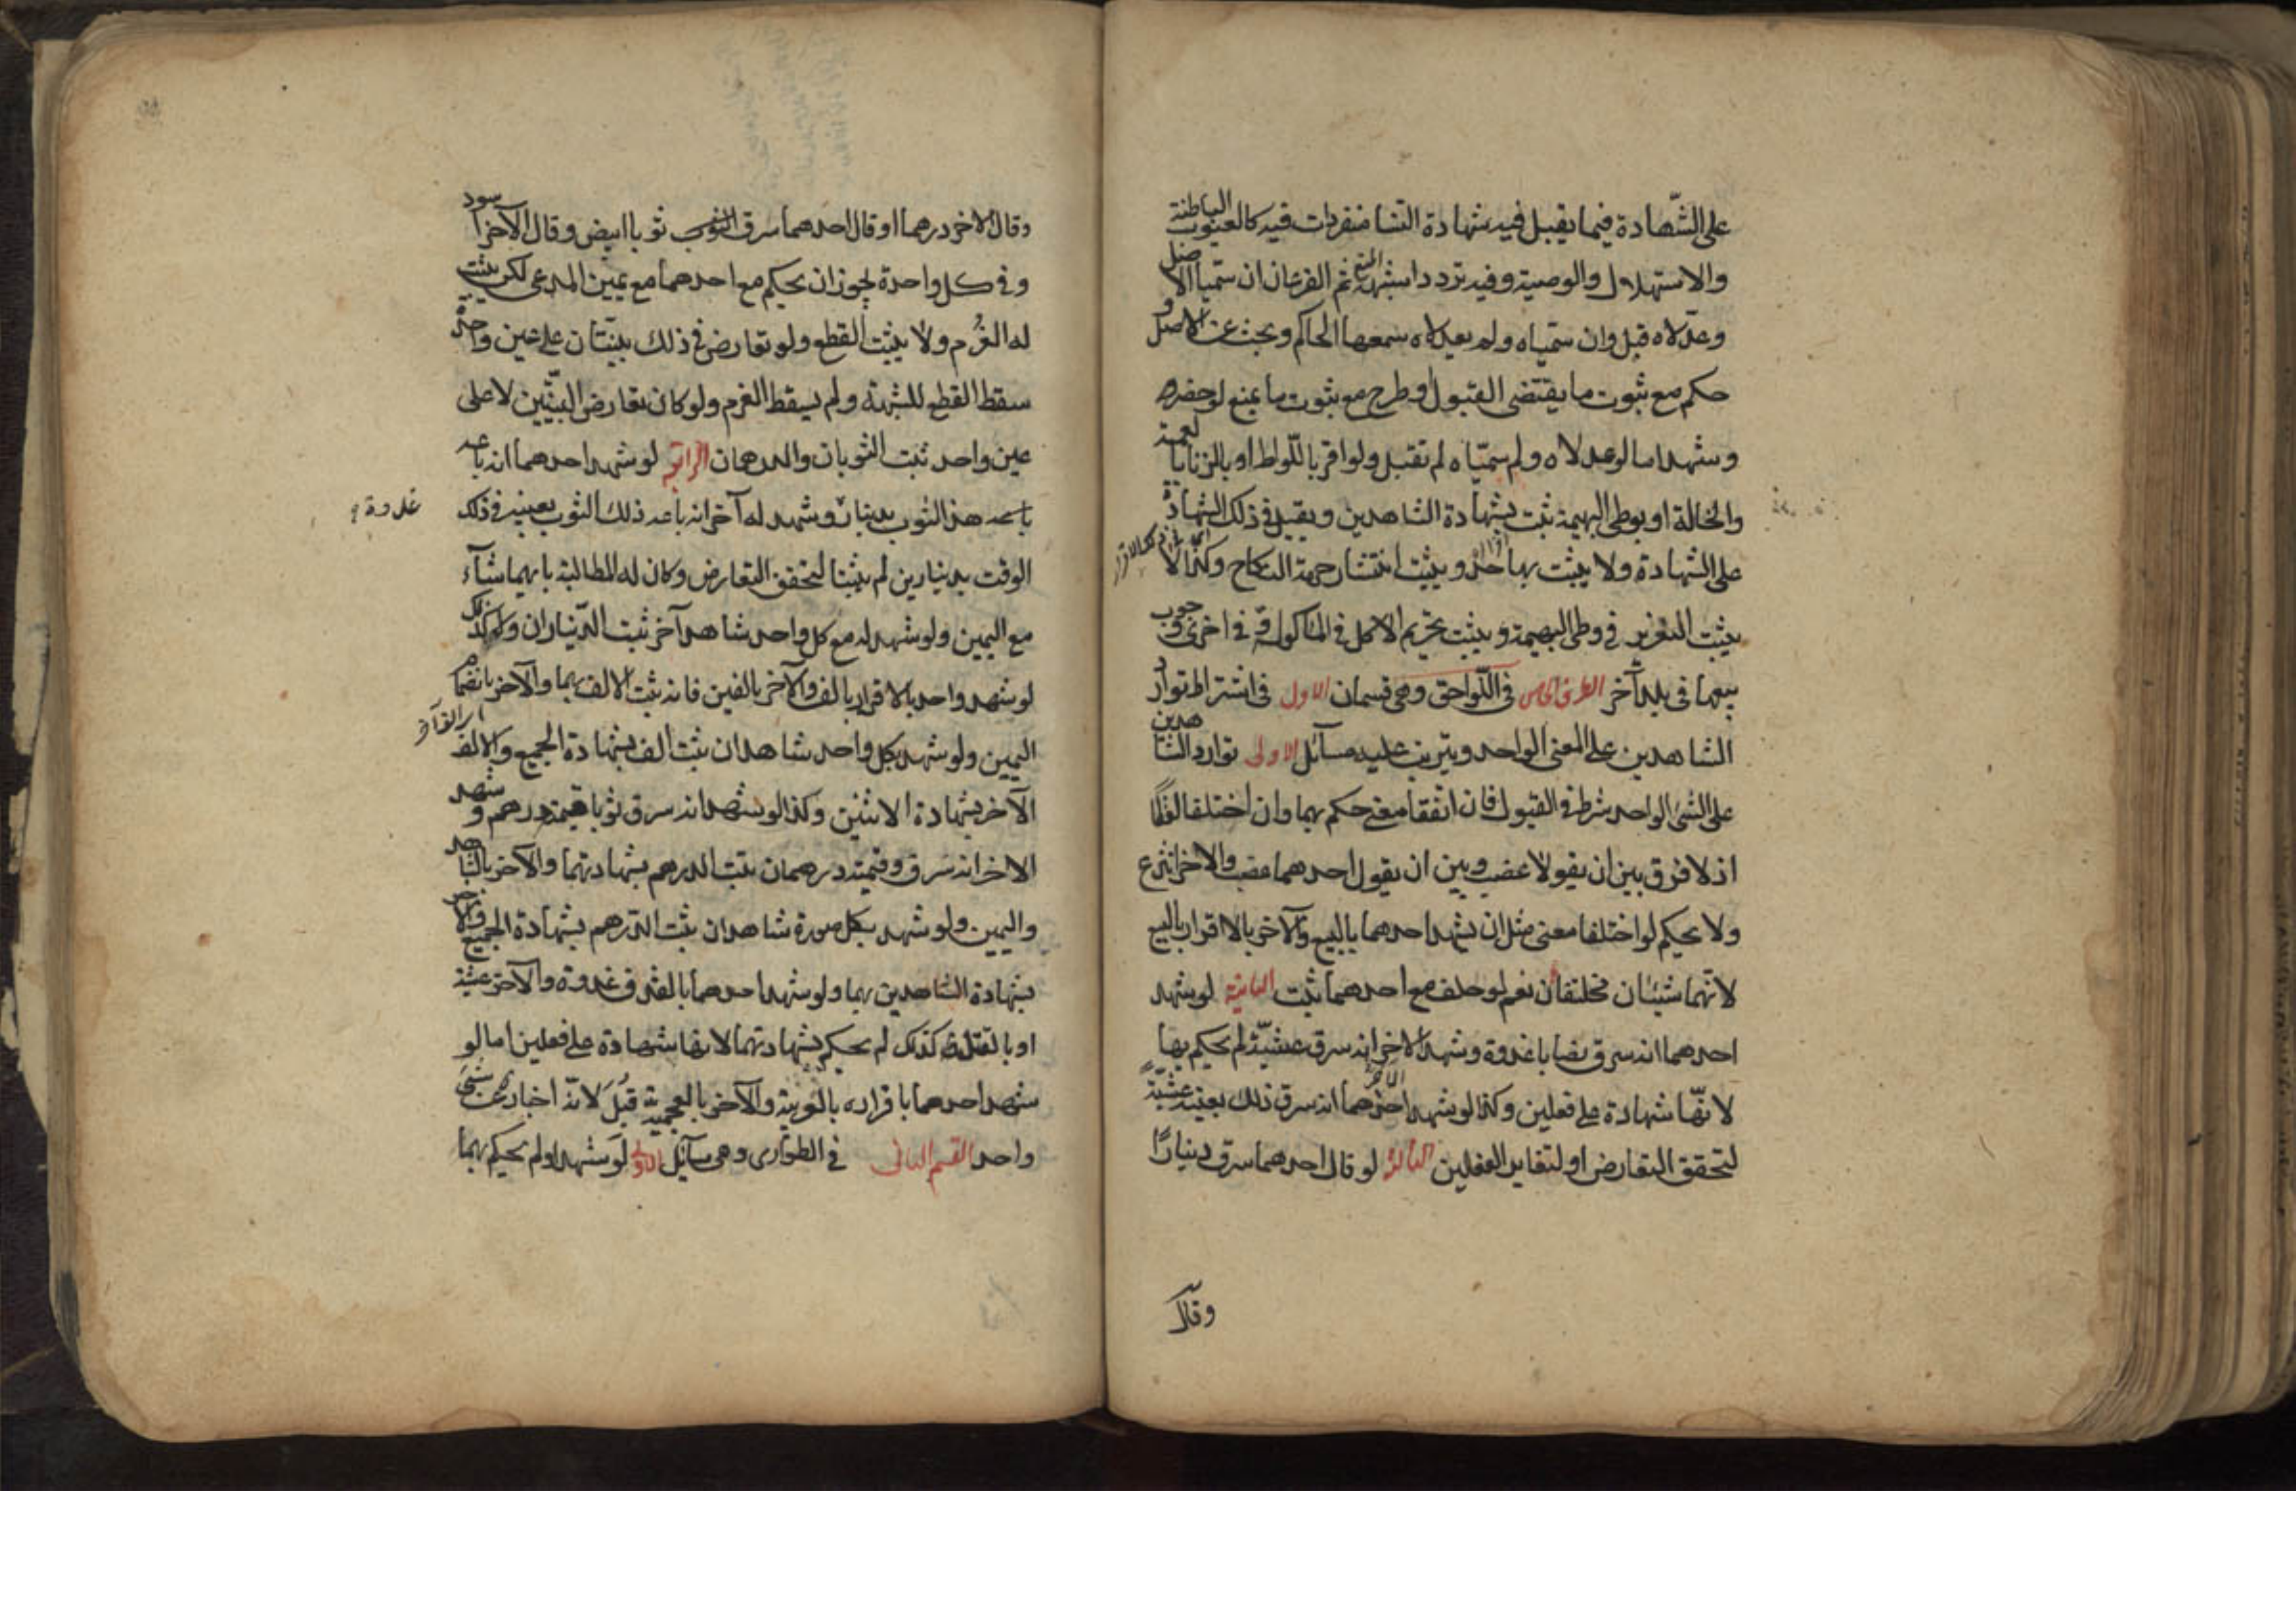 على الشهادة فيما يقبل فيه شهادة النسا منفردات فيه كالعيوب الباطنة
والاستهلال والوصية وفيه تردد اشبهه المنع ثم الفرعان ان سميا الاصل
وعدلاه قبل وان سمياه ولم يعدلاه سمعها الحاكم وبحث عن الاصل و
حكم مع ثبوت ما يقتضى القبول او طرح مع ثبوت ما يمنع لو حضر
وشهد اما لو عدلاه ولم يسمياه لم تقبل ولو اقر باللواط او بالزنا بالعمة
والخالة او بوطى البهيمة ثبت بشهادة الشاهدين ويقبل فى ذلك الشهادة
على الشهادة ولا يثبت بها حد ويثبت انتشار حرمة النكاح وكذا لا
يثبت التعزير فى وطى البهيمة ويثبت تحريم الاكل فى الماكولة وفى اخرى وجوب
بيعها فى بلد آخر الطرف الخامس فى اللواحق وهى قسمان الاول فى اشتراط توارد
الشاهدين على المعنى الواحد ويترتب عليه مسائل الاولى توارد الشاهدين
على الشئ الواحد شرط فى القبول فان اتفقا معنى حكم بهما وان اختلفا لفظا
اذ لا فرق بين ان يقولا غصب وبين ان يقول احدهما غصب والاخر انتزع
ولا يحكم لو اختلفا معنى مثل ان يشهد احدهما بالبيع والآخر بالاقرار بالبيع
لانهما شيئان مختلفان نعم لو حلف مع احدهما ثبت الثانية لو شهد
احدهما انه سرق نصابا غدوة وشهد الاخر انه سرق عشية لم يحكم بها
لانها شهادة على فعلين وكذا لو شهد الآخر انه سرق ذلك بعينه عشية
لتحقق التعارض او لتغاير الفعلين الثالثة لو قال احدهما سرق دينارا
وقال
وقال الاخر درهما او قال احدهما سرق ثوبا ابيض وقال الآخر اسود
وفى كل واحدة يجوز ان يحكم مع احدهما مع يمين المدعى لكن يثبت
له الغرم ولا يثبت القطع ولو تعارض فى ذلك بينتان على عين واحدة
سقط القطع للشبهة ولم يسقط الغرم ولو كان تعارض البينتين لا على
عين واحد ثبت الثوبان والدرهمان الرابعة لو شهد احدهما انه باعه
هذا الثوب بدينار وشهد له آخر انه باعه ذلك الثوب بعينه فى ذلك
غدوة
الوقت بدينارين لم يثبتا لتحقق التعارض وكان له المطالبة بايهما شآء
مع اليمين ولو شهد له مع كل واحد شاهد آخر ثبت الديناران وكذلك
لو شهد واحد بالاقرار بالف والآخر بالفين فانه ثبت الالف بهما والآخر بانضمام
اليمين ولو شهد بكل واحد شاهدان ثبت الف بشهادة الجميع والالف
الآخر بشهادة الاثنين وكذا لو شهد انه سرق ثوبا قيمته درهم وشهد
الاخر انه سرق وقيمته درهمان ثبت الدرهم بشهادتهما والآخر بالشاهد
واليمين ولو شهد بكل صورة شاهدان ثبت الدرهم بشهادة الجميع والآخر
بشهادة الشاهدين بهما ولو شهد احدهما بالقذف غدوة والآخر عشية
او بالقتل كذلك لم يحكم بشهادتهما لانها شهادة على فعلين اما لو
شهد احدهما باقراره بالعربية والآخر بالعجمية قبل لانه اخبار عن شئ
واحد القسم الثانى فى الطوارى وهى مسآئل الاولى لو شهدا ولم يحكم بهما